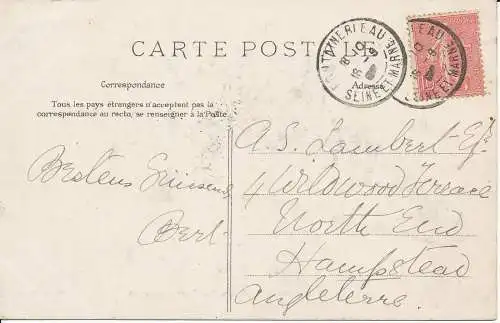 CARTE POSTALE
FONTAINEBLEAU
SEINE ET MARNE
Correspondance
Adresse
Tous les pays étrangers n'acceptent pas la
correspondance au recto, se renseigner à la Poste
Bert
A. S. Lambert Esq.
4 Wildwood Terrace
North End
Hampstead
Angleterre.